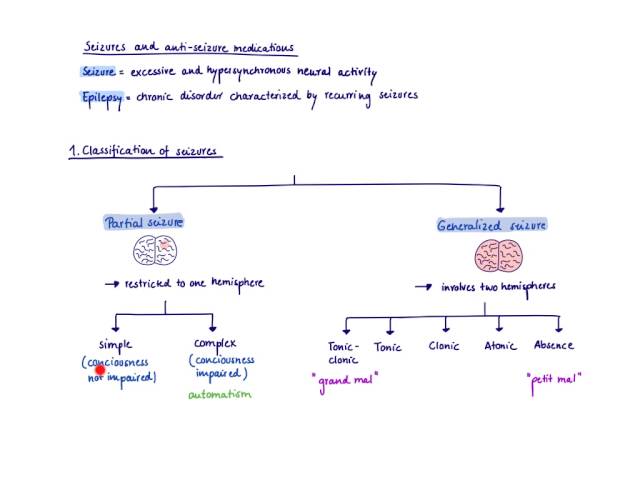 Seizures and anti-seizure medications
Seizure = excessive and hypersynchronous neural activity
Epilepsy = chronic disorder characterized by recurring seizures
1. Classification of seizures
Partial seizure
Generalized seizure
→ restricted to one hemisphere
→ involves two hemispheres
simple
(conciousness
not impaired)
complex
(conciousness
impaired)
automatism
Tonic-
clonic
"grand mal"
Tonic
Clonic
Atonic
Absence
"petit mal"